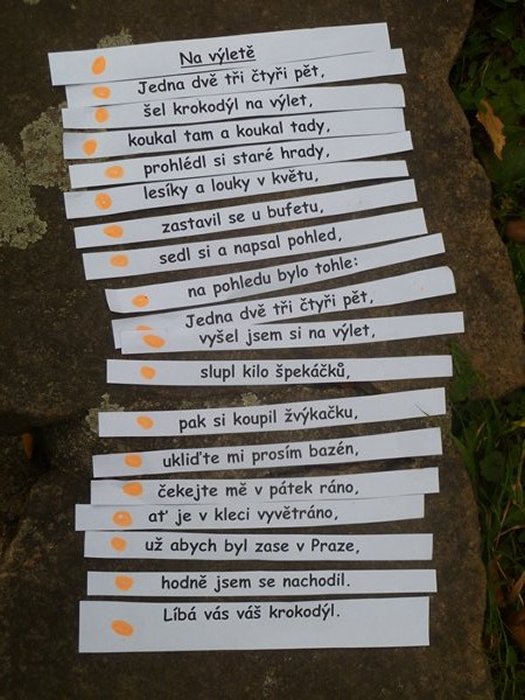 Na výletě
Jedna dvě tři čtyři pět,
šel krokodýl na výlet,
koukal tam a koukal tady,
prohlédl si staré hrady,
lesíky a louky v květu,
zastavil se u bufetu,
sedl si a napsal pohled,
na pohledu bylo tohle:
Jedna dvě tři čtyři pět,
vyšel jsem si na výlet,
slupl kilo špekáčků,
pak si koupil žvýkačku,
ukliďte mi prosím bazén,
čekejte mě v pátek ráno,
ať je v kleci vyvětráno,
už abych byl zase v Praze,
hodně jsem se nachodil.
Líbá vás váš krokodýl.